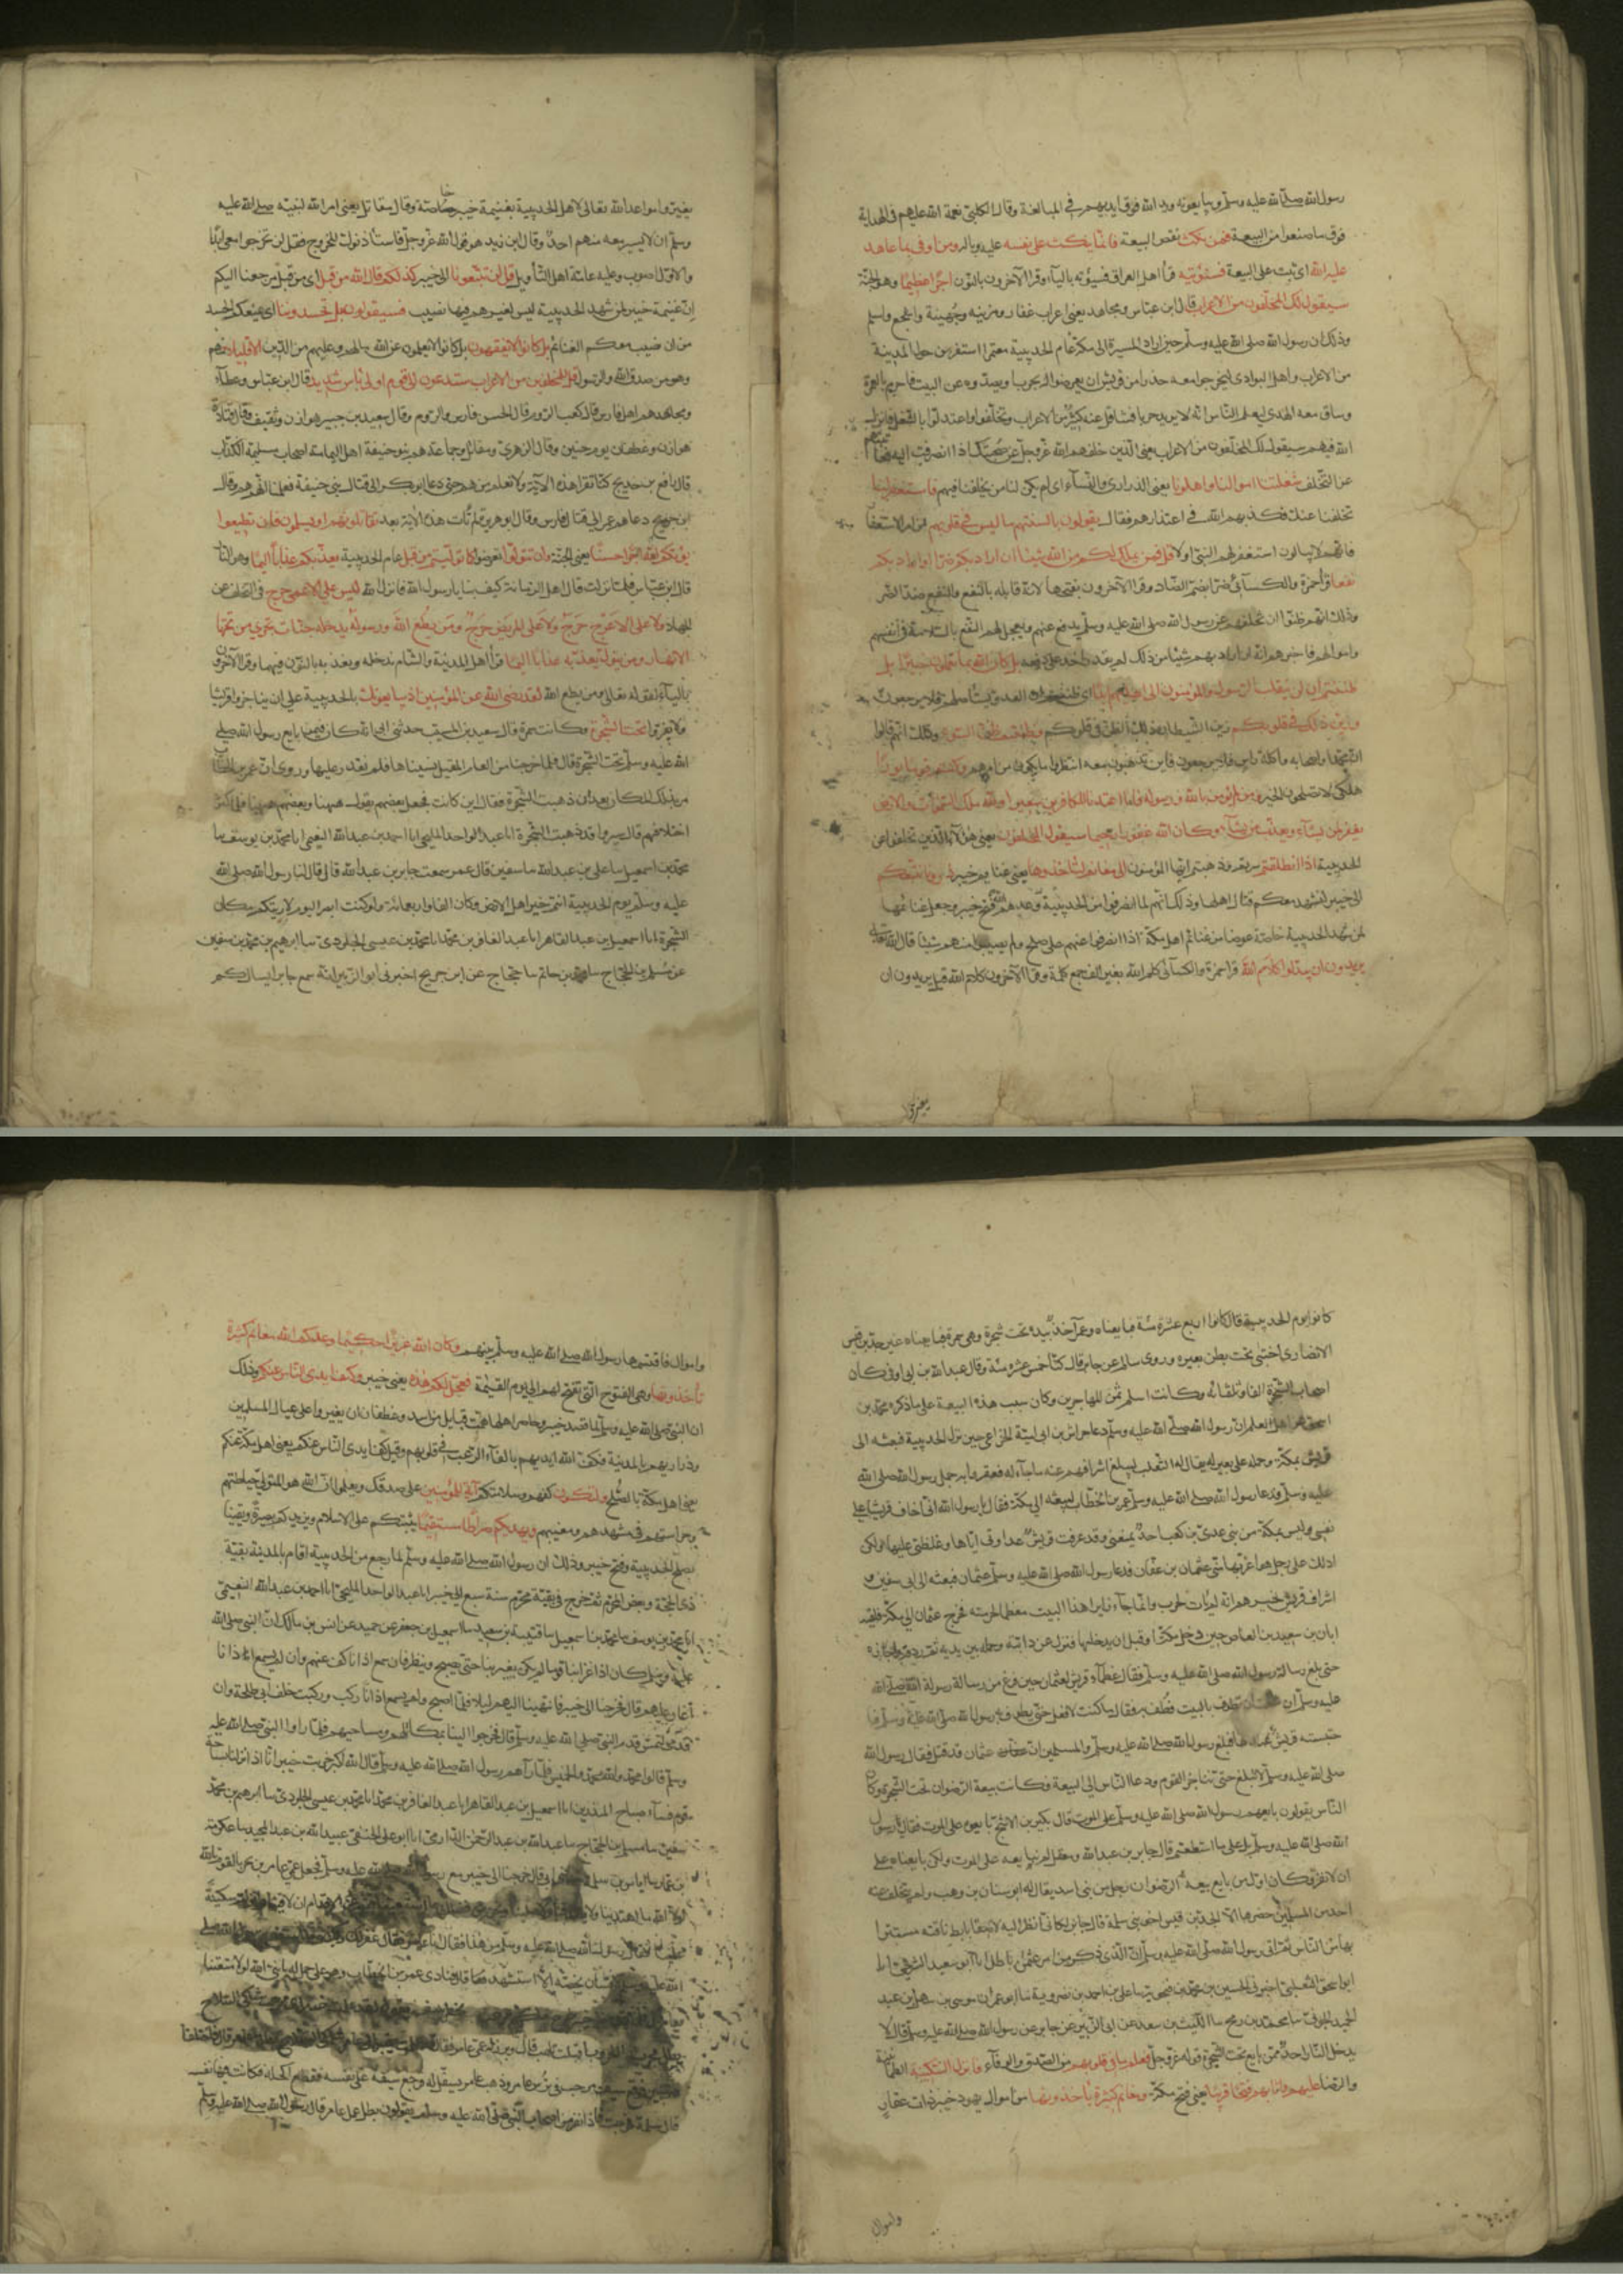 رسول الله صلى الله عليه وسلم ويبايعونه ويد الله فوق ايديهم في المبالغة وقال الكلبي نعمة الله عليهم في الهداية
فوق ما صنعوا من البيعة فمن نكث نقض البيعة فانما ينكث على نفسه عليه وباله ومن اوفى بما عاهد
عليه الله اي ثبت على البيعة فسنؤتيه قرأ اهل العراق فسيؤتيه بالياء وقرا الآخرون بالنون اجرا عظيما وهو الجنة
سيقول لك المخلفون من الاعراب قال ابن عباس ومجاهد يعني اعراب غفار ومزينه وجهينة واشجع واسلم
وذلك ان رسول الله صلى الله عليه وسلم حين اراد المسيرة الى مكة عام الحديبية معتمرا استنفر من حول المدينة
من الاعراب واهل البوادي ليخرجوا معه حذرا من قريش ان يعرضوا له بحرب او يصدوه عن البيت فاحرم بالعمرة
وساق معه الهدي ليعلم الناس انه لا يريد حربا فتثاقل عنه كثير من الاعراب وتخلفوا واعتلوا بالشغل فانزل
الله فيهم سيقول لك المخلفون من الاعراب يعني الذين خلفهم الله عز وجل عن صحبتك اذا انصرفت اليهم
عن التخلف شغلتنا اموالنا واهلونا يعني الذراري والنساء اي لم يكن لنا من يخلفنا فيهم فاستغفر لنا
تخلفنا عنك فكذبهم الله في اعتذارهم فقال يقولون بالسنتهم ما ليس في قلوبهم من امر الاستغفار
فانهم لا يبالون استغفر لهم النبي او لا قل فمن يملك لكم من الله شيئا ان اراد بكم ضرا او اراد بكم
نفعا قرأ حمزة والكسائي ضرا بضم الضاد وقرا الآخرون بفتحها لانه قابله بالنفع والنفع ضد الضر
وذلك انهم ظنوا ان تخلفهم عن رسول الله صلى الله عليه وسلم يدفع عنهم ويعجل لهم النفع بالسلامة في انفسهم
واموالهم فاخبرهم انه ان اراد بهم شيئا من ذلك لم يقدر احد على دفعه بل كان الله بما تعملون خبيرا بل
ظننتم ان لن ينقلب الرسول والمؤمنون الى اهليهم ابدا اي ظننتم ان العدو يستاصلهم فلا يرجعون
وزين ذلك في قلوبكم زين الشيطان ذلك الظن في قلوبكم وظننتم ظن السوء وذلك انهم قالوا
ان محمدا واصحابه اكلة راس فلا يرجعون فاين تذهبون معه انتظروا ما يكون من امرهم وكنتم قوما بورا
هلكى لا تصلحون لخير ومن لم يؤمن بالله ورسوله فانا اعتدنا للكافرين سعيرا ولله ملك السموات والارض
يغفر لمن يشاء ويعذب من يشاء وكان الله غفورا رحيما سيقول المخلفون يعني هؤلاء الذين تخلفوا عن
الحديبية اذا انطلقتم سرتم وذهبتم ايها المؤمنون الى مغانم لتاخذوها يعني غنايم خيبر ذرونا نتبعكم
الى خيبر لنشهد معكم قتال اهلها وذلك انهم لما انصرفوا من الحديبية وعدهم الله فتح خيبر وجعل غنائمها
لمن شهد الحديبية خاصة عوضا من غنائم اهل مكة اذا انصرفوا عنهم على صلح ولم يصيبوا منهم شيئا قال الله تعالى
يريدون ان يبدلوا كلام الله قرا حمزة والكسائي كلم الله بغير الف جمع كلمة وقرا الآخرون كلام الله قيل يريدون ان
يغيروا
يغيروا مواعد الله تعالى لاهل الحديبية بغنيمة خيبر خاصة وقال مقاتل يعني امر الله لنبيه صلى الله عليه
وسلم ان لا يسير معه منهم احد وقال ابن زيد هو قول الله عز وجل فاستأذنوك للخروج فقل لن تخرجوا معي ابدا
والاول اصوب وعليه عامة اهل التأويل قل لن تتبعونا الى خيبر كذلكم قال الله من قبل اي من قبل مرجعنا اليكم
ان غنيمة خيبر لمن شهد الحديبية ليس لغيرهم فيها نصيب فسيقولون بل تحسدوننا اي يمنعكم الحسد
من ان نصيب معكم الغنائم بل كانوا لا يفقهون بل كانوا لا يعلمون عن الله ما لهم وعليهم من الدين الا قليلا منهم
وهو من صدق الله والرسول قل للمخلفين من الاعراب ستدعون الى قوم اولي باس شديد قال ابن عباس وعطاء
ومجاهد هم اهل فارس وقال كعب الروم وقال الحسن فارس والروم وقال سعيد بن جبير هوازن وثقيف وقال قتادة
هوازن وغطفان يوم حنين وقال الزهري ومقاتل وجماعة هم بنو حنيفة اهل اليمامة اصحاب مسيلمة الكذاب
قال رافع بن خديج كنا نقرا هذه الآية ولا نعلم من هم حتى دعا ابو بكر الى قتال بني حنيفة فعلمنا انهم هم وقال
ابن جريج دعاهم عمر الى قتال فارس وقال ابو هريرة لم تات هذه الآية بعد تقاتلونهم او يسلمون فان تطيعوا
يؤتكم الله اجرا حسنا يعني الجنة وان تتولوا تعرضوا كما توليتم من قبل عام الحديبية يعذبكم عذابا اليما وهو النار
قال ابن عباس فلما نزلت قال اهل الزمانة كيف بنا يا رسول الله فانزل الله ليس على الاعمى حرج في التخلف عن
الجهاد ولا على الاعرج حرج ولا على المريض حرج ومن يطع الله ورسوله يدخله جنات تجري من تحتها
الانهار ومن يتول يعذبه عذابا اليما قرأ اهل المدينة والشام ندخله ونعذبه بالنون فيهما وقرا الآخرون
بالياء لقوله تعالى ومن يطع الله لقد رضي الله عن المؤمنين اذ يبايعونك بالحديبية على ان يناجزوا قريشا
ولا يفروا تحت الشجرة وكانت سمرة قال سعيد بن المسيب حدثني ابي انه كان فيمن بايع رسول الله صلى
الله عليه وسلم تحت الشجرة قال فلما خرجنا من العام المقبل نسيناها فلم نقدر عليها وروي ان عمر بن الخطاب
مر بذلك المكان بعد ان ذهبت الشجرة فقال اين كانت فجعل بعضهم يقول ههنا وبعضهم ههنا فلما كثر
اختلافهم قال سيروا قد ذهبت الشجرة انا عبد الواحد المليحي انا احمد بن عبد الله النعيمي انا محمد بن يوسف نا
محمد بن اسمعيل نا علي بن عبد الله نا سفين قال عمر سمعت جابر بن عبد الله قال قال لنا رسول الله صلى الله
عليه وسلم يوم الحديبية انتم خير اهل الارض وكان الفا واربعمائة ولو كنت ابصر اليوم لاريتكم مكان
الشجرة انا اسمعيل بن عبد القاهر انا عبد الغافر بن محمد انا محمد بن عيسى الجلودي نا ابرهيم بن محمد بن سفين
عن مسلم بن الحجاج نا محمد بن حاتم نا حجاج عن ابن جريج اخبرني ابو الزبير انه سمع جابرا يسال كم
كانوا يوم الحديبية قال كانوا اربع عشرة مئة فبايعناه وعمر آخذ بيده تحت شجرة وهي سمرة فبايعناه غير جد بن قيس
الانصاري اختبى تحت بطن بعيره وروى سالم عن جابر قال كنا خمس عشره مئة وقال عبد الله بن ابي اوفى كان
اصحاب الشجرة الفا وثلثمائه وكانت اسلم ثمن المهاجرين وكان سبب هذه البيعة على ما ذكره محمد بن
اسحق عن اهل العلم ان رسول الله صلى الله عليه وسلم دعا خراش بن ابي امية الخزاعي حين نزل الحديبية فبعثه الى
قريش بمكة وحمله على بعير له يقال له الثعلب ليبلغ اشرافهم عنه ما جاء له فعقروا به جمل رسول الله صلى الله
عليه وسلم فدعا رسول الله صلى الله عليه وسلم عمر بن الخطاب ليبعثه الى مكة فقال يا رسول الله اني اخاف قريشا على
نفسي وليس بمكة من بني عدي بن كعب احد يمنعني وقد عرفت قريش عداوتي اياها وغلظتي عليها ولكن
ادلك على رجل هو اعز بها مني عثمان بن عفان فدعا رسول الله صلى الله عليه وسلم عثمان فبعثه الى ابي سفين و
اشراف قريش يخبرهم انه لم يأت لحرب وانما جاء زايرا لهذا البيت معظما لحرمته فخرج عثمان الى مكة فلقيه
ابان بن سعيد بن العاص حين دخل مكة او قبل ان يدخلها فنزل عن دابته وحمله بين يديه ثم ردفه واجاره
حتى بلغ رسالة رسول الله صلى الله عليه وسلم فقال عظماء قريش لعثمان حين فرغ من رسالة رسول الله صلى الله
عليه وسلم ان شئت ان تطوف بالبيت فطف به فقال ما كنت لافعل حتى يطوف به رسول الله صلى الله عليه وسلم فا
حتبسته قريش عندها فبلغ رسول الله صلى الله عليه وسلم والمسلمين ان عثمان قد قتل فقال رسول الله
صلى الله عليه وسلم لا نبرح حتى نناجز القوم ودعا الناس الى البيعة وكانت بيعة الرضوان تحت الشجرة وكان
الناس يقولون بايعهم رسول الله صلى الله عليه وسلم على الموت قال بكير بن الاشج بايعوه على الموت فقال رسول
الله صلى الله عليه وسلم بل على ما استطعتم قال جابر بن عبد الله ومعقل لم نبايعه على الموت ولكن بايعناه على
ان لا نفر وكان اول من بايع بيعة الرضوان رجل من بني اسد يقال له ابو سنان بن وهب ولم يتخلف عنه
احد من المسلمين حضرها الا الجد بن قيس اخو بني سلمة قال جابر لكاني انظر اليه لاصقا بابط ناقته مستترا
بها من الناس ثم اتى رسول الله صلى الله عليه وسلم ان الذي ذكر من امر عثمان باطل انا ابو سعيد الشريحي انا
ابو اسحق الثعلبي اخبرني الحسين بن محمد بن فنجويه نا علي بن احمد بن نصرويه نا ابو عمران موسى بن سهل بن عبد
الحميد الجوني نا محمد بن رمح نا الليث بن سعد عن ابي الزبير عن جابر عن رسول الله صلى الله عليه وسلم قال لا
يدخل النار احد ممن بايع تحت الشجرة قوله عز وجل فعلم ما في قلوبهم من الصدق والوفاء فانزل السكينة الطمانينة
والرضا عليهم واثابهم فتحا قريبا يعني فتح مكة ومغانم كثيرة ياخذونها من اموال يهود خيبر ذات عقار
واموال
واموال فاقتسمها رسول الله صلى الله عليه وسلم بينهم وكان الله عزيزا حكيما وعدكم الله مغانم كثيرة
تأخذونها وهي الفتوح التي تفتح لهم الى يوم القيمة فعجل لكم هذه يعني خيبر وكف ايدي الناس عنكم وذلك
ان النبي صلى الله عليه وسلم لما قصد خيبر وحاصر اهلها همت قبايل من اسد وغطفان ان يغيروا على عيال المسلمين
وذراريهم بالمدينة فكف الله ايديهم بالقاء الرعب في قلوبهم وقيل كف ايدي الناس عنكم يعني اهل مكة عنكم
يعني اهل مكة بالصلح ولتكون كفهم وسلامتكم آية للمؤمنين على صدقك ويعلموا ان الله هو المتولي حياطتهم
وحراستهم في مشهدهم ومغيبهم ويهديكم صراطا مستقيما يثبتكم على الاسلام ويزيدكم بصيرة ويقينا
بصلح الحديبية وفتح خيبر وذلك ان رسول الله صلى الله عليه وسلم لما رجع من الحديبية اقام بالمدينة بقية
ذي الحجة وبعض المحرم ثم خرج في بقية محرم سنة سبع الى خيبر انا عبد الواحد المليحي انا احمد بن عبد الله النعيمي
انا محمد بن يوسف نا محمد بن اسمعيل نا قتيبة بن سعيد نا اسمعيل بن جعفر عن حميد عن انس بن مالك ان النبي صلى الله
عليه وسلم كان اذا غزا بنا قوما لم يكن يغير بنا حتى يصبح وينظر فان سمع اذانا كف عنهم وان لم يسمع اذانا
اغار عليهم قال فخرجنا الى خيبر فانتهينا اليهم ليلا فلما اصبح ولم يسمع اذانا ركب وركبت خلف ابي طلحة وان
قدمي لتمس قدم النبي صلى الله عليه وسلم قال فخرجوا الينا بمكاتلهم ومساحيهم فلما راوا النبي صلى الله عليه
وسلم قالوا محمد والله محمد والخميس فلما رآهم رسول الله صلى الله عليه وسلم قال الله اكبر خربت خيبر انا اذا نزلنا بساحة
قوم فساء صباح المنذرين انا اسمعيل بن عبد القاهر انا عبد الغافر بن محمد انا محمد بن عيسى الجلودي نا ابرهيم بن محمد
سفين نا مسلم بن الحجاج نا عبد الله بن عبد الرحمن الدارمي انا ابو علي الحنفي عبيد الله بن عبد المجيد نا عكرمة
بن عمار نا اياس بن سلمة قال خرجنا الى خيبر مع رسول الله صلى الله عليه وسلم فجعل عمي عامر يرتجز بالقوم تالله
لولا الله ما اهتدينا ولا
الله عليه وسلم لانسان يخصه الا استشهد قال فنادى عمر بن الخطاب وهو على جمل له يا نبي الله لولا متعتنا
فرجع سيفه على نفسه فقطع اكحله فكانت فيها نفسه
قال سلمة فخرجت فاذا نفر من اصحاب النبي صلى الله عليه وسلم يقولون بطل عمل عامر قال رسول الله صلى الله عليه وسلم